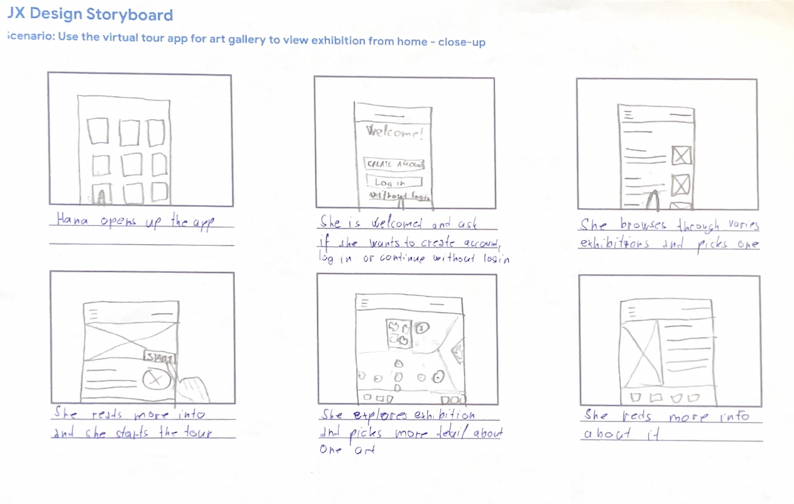 UX Design Storyboard
Scenario: Use the virtual tour app for art gallery to view exhibition from home - close-up
Hana opens up the app
Welcome!
CREATE ACCOUNT
Log in
without login
She is welcomed and ask
if she wants to create account,
log in or continue without login
She browses through varies
exhibitions and picks one
START
She reads more into
and she starts the tour
She explores exhibition
and picks more detail about
one art
She reds more info
about it